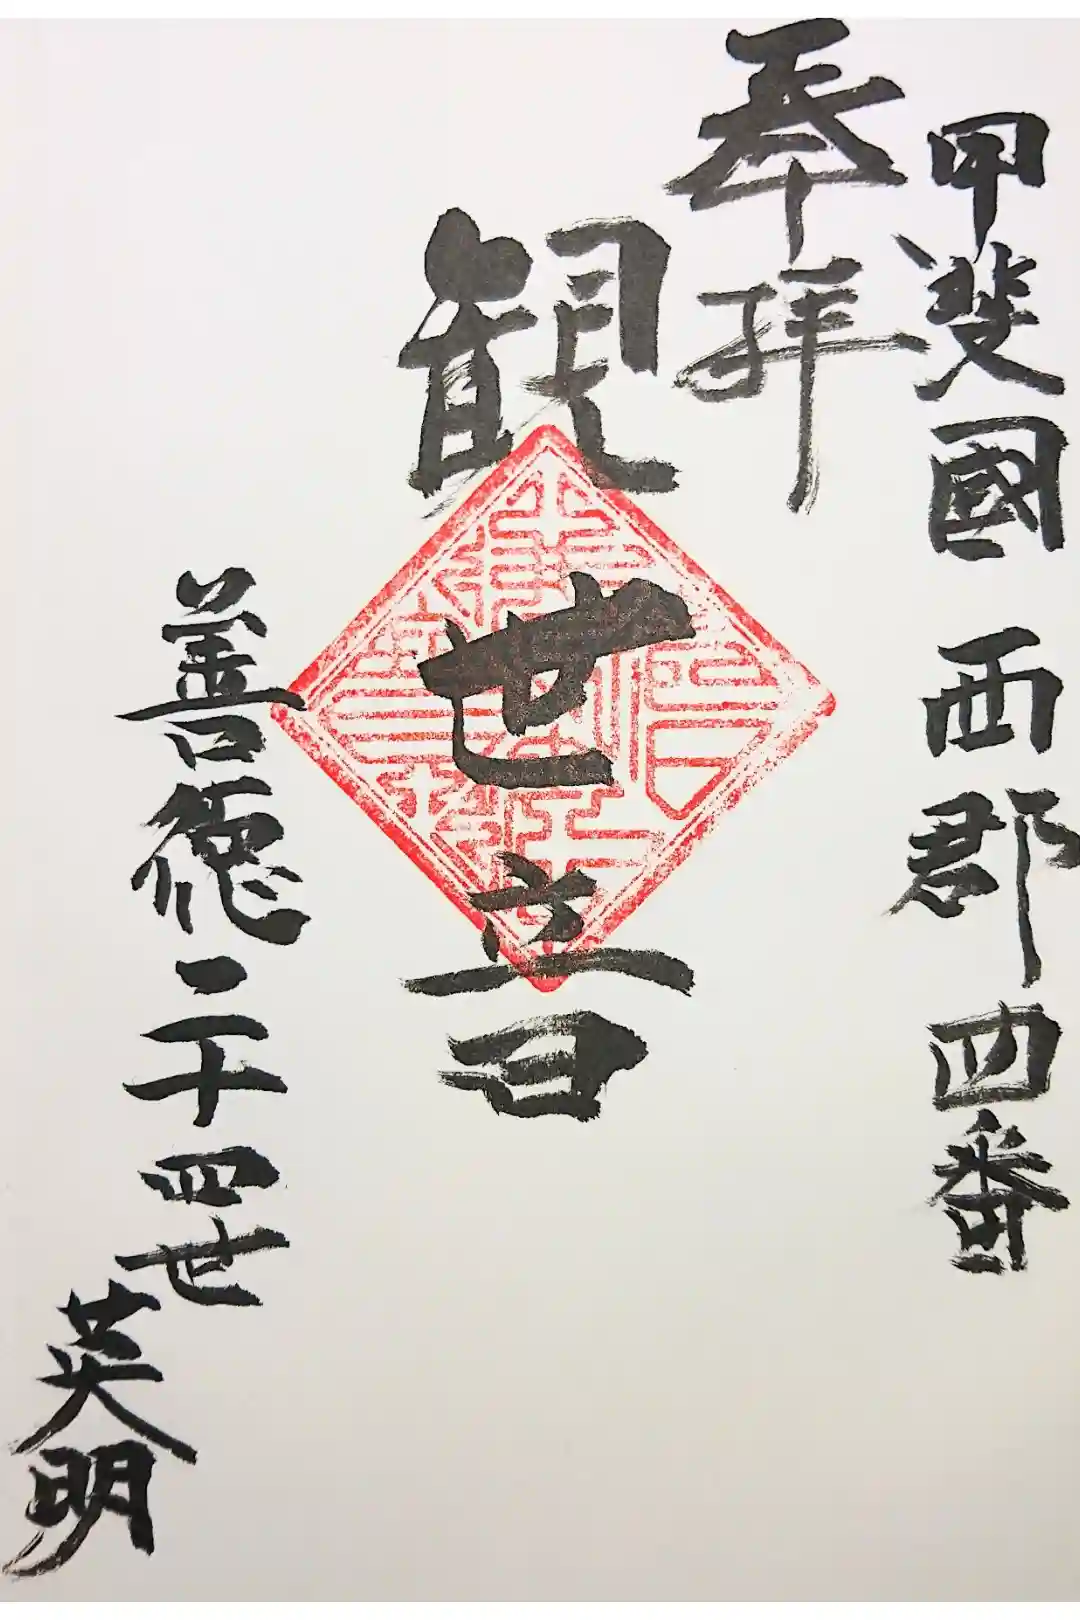 甲斐國 西郡 四番
奉拝
観世音
善徳二十四世
英明